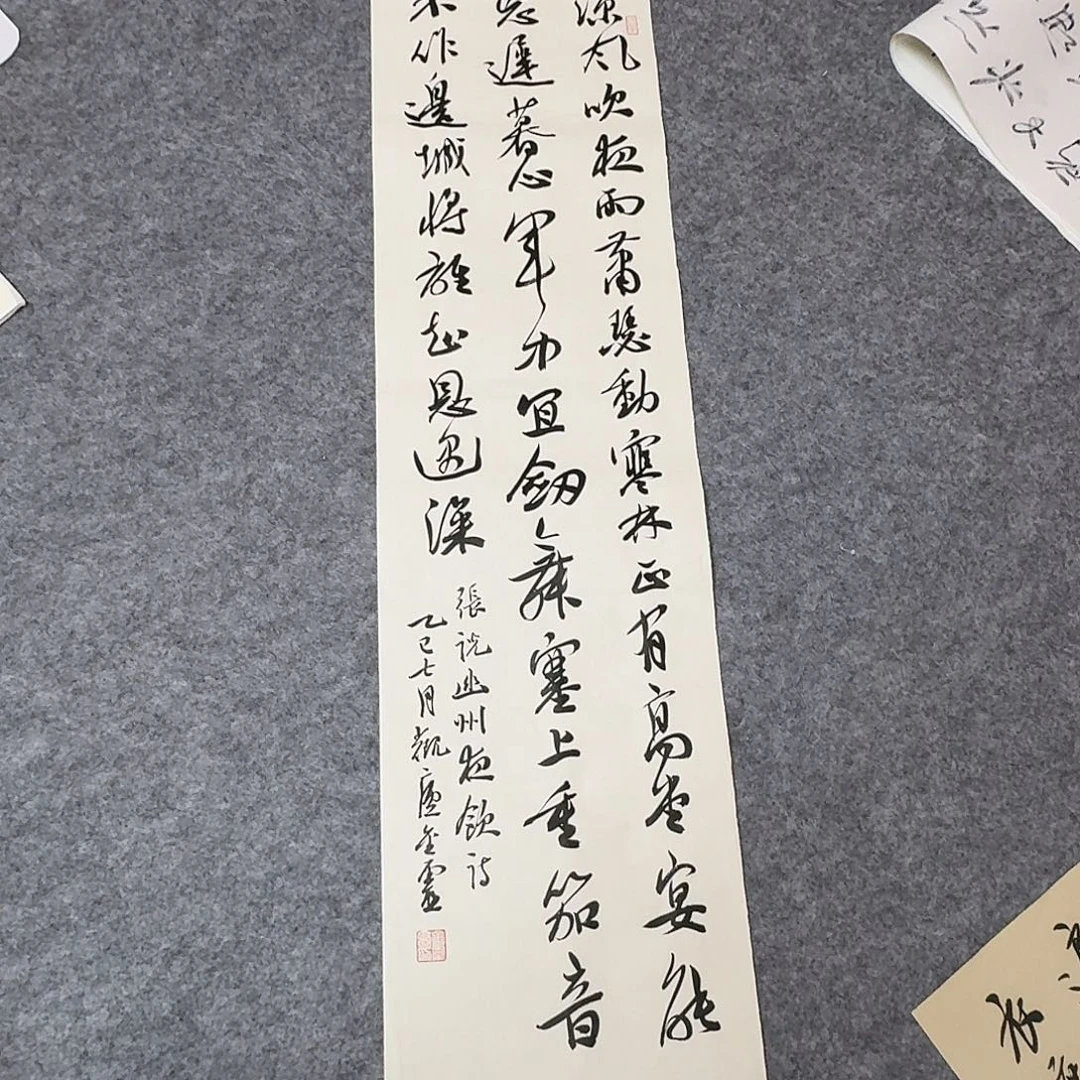 涼風吹夜雨蕭瑟動寒林正有高堂宴能
忘遲暮心軍中宜劒舞塞上重笳音
不作邊城將誰知恩遇深
張說幽州夜飲詩
乙巳七月觀廬